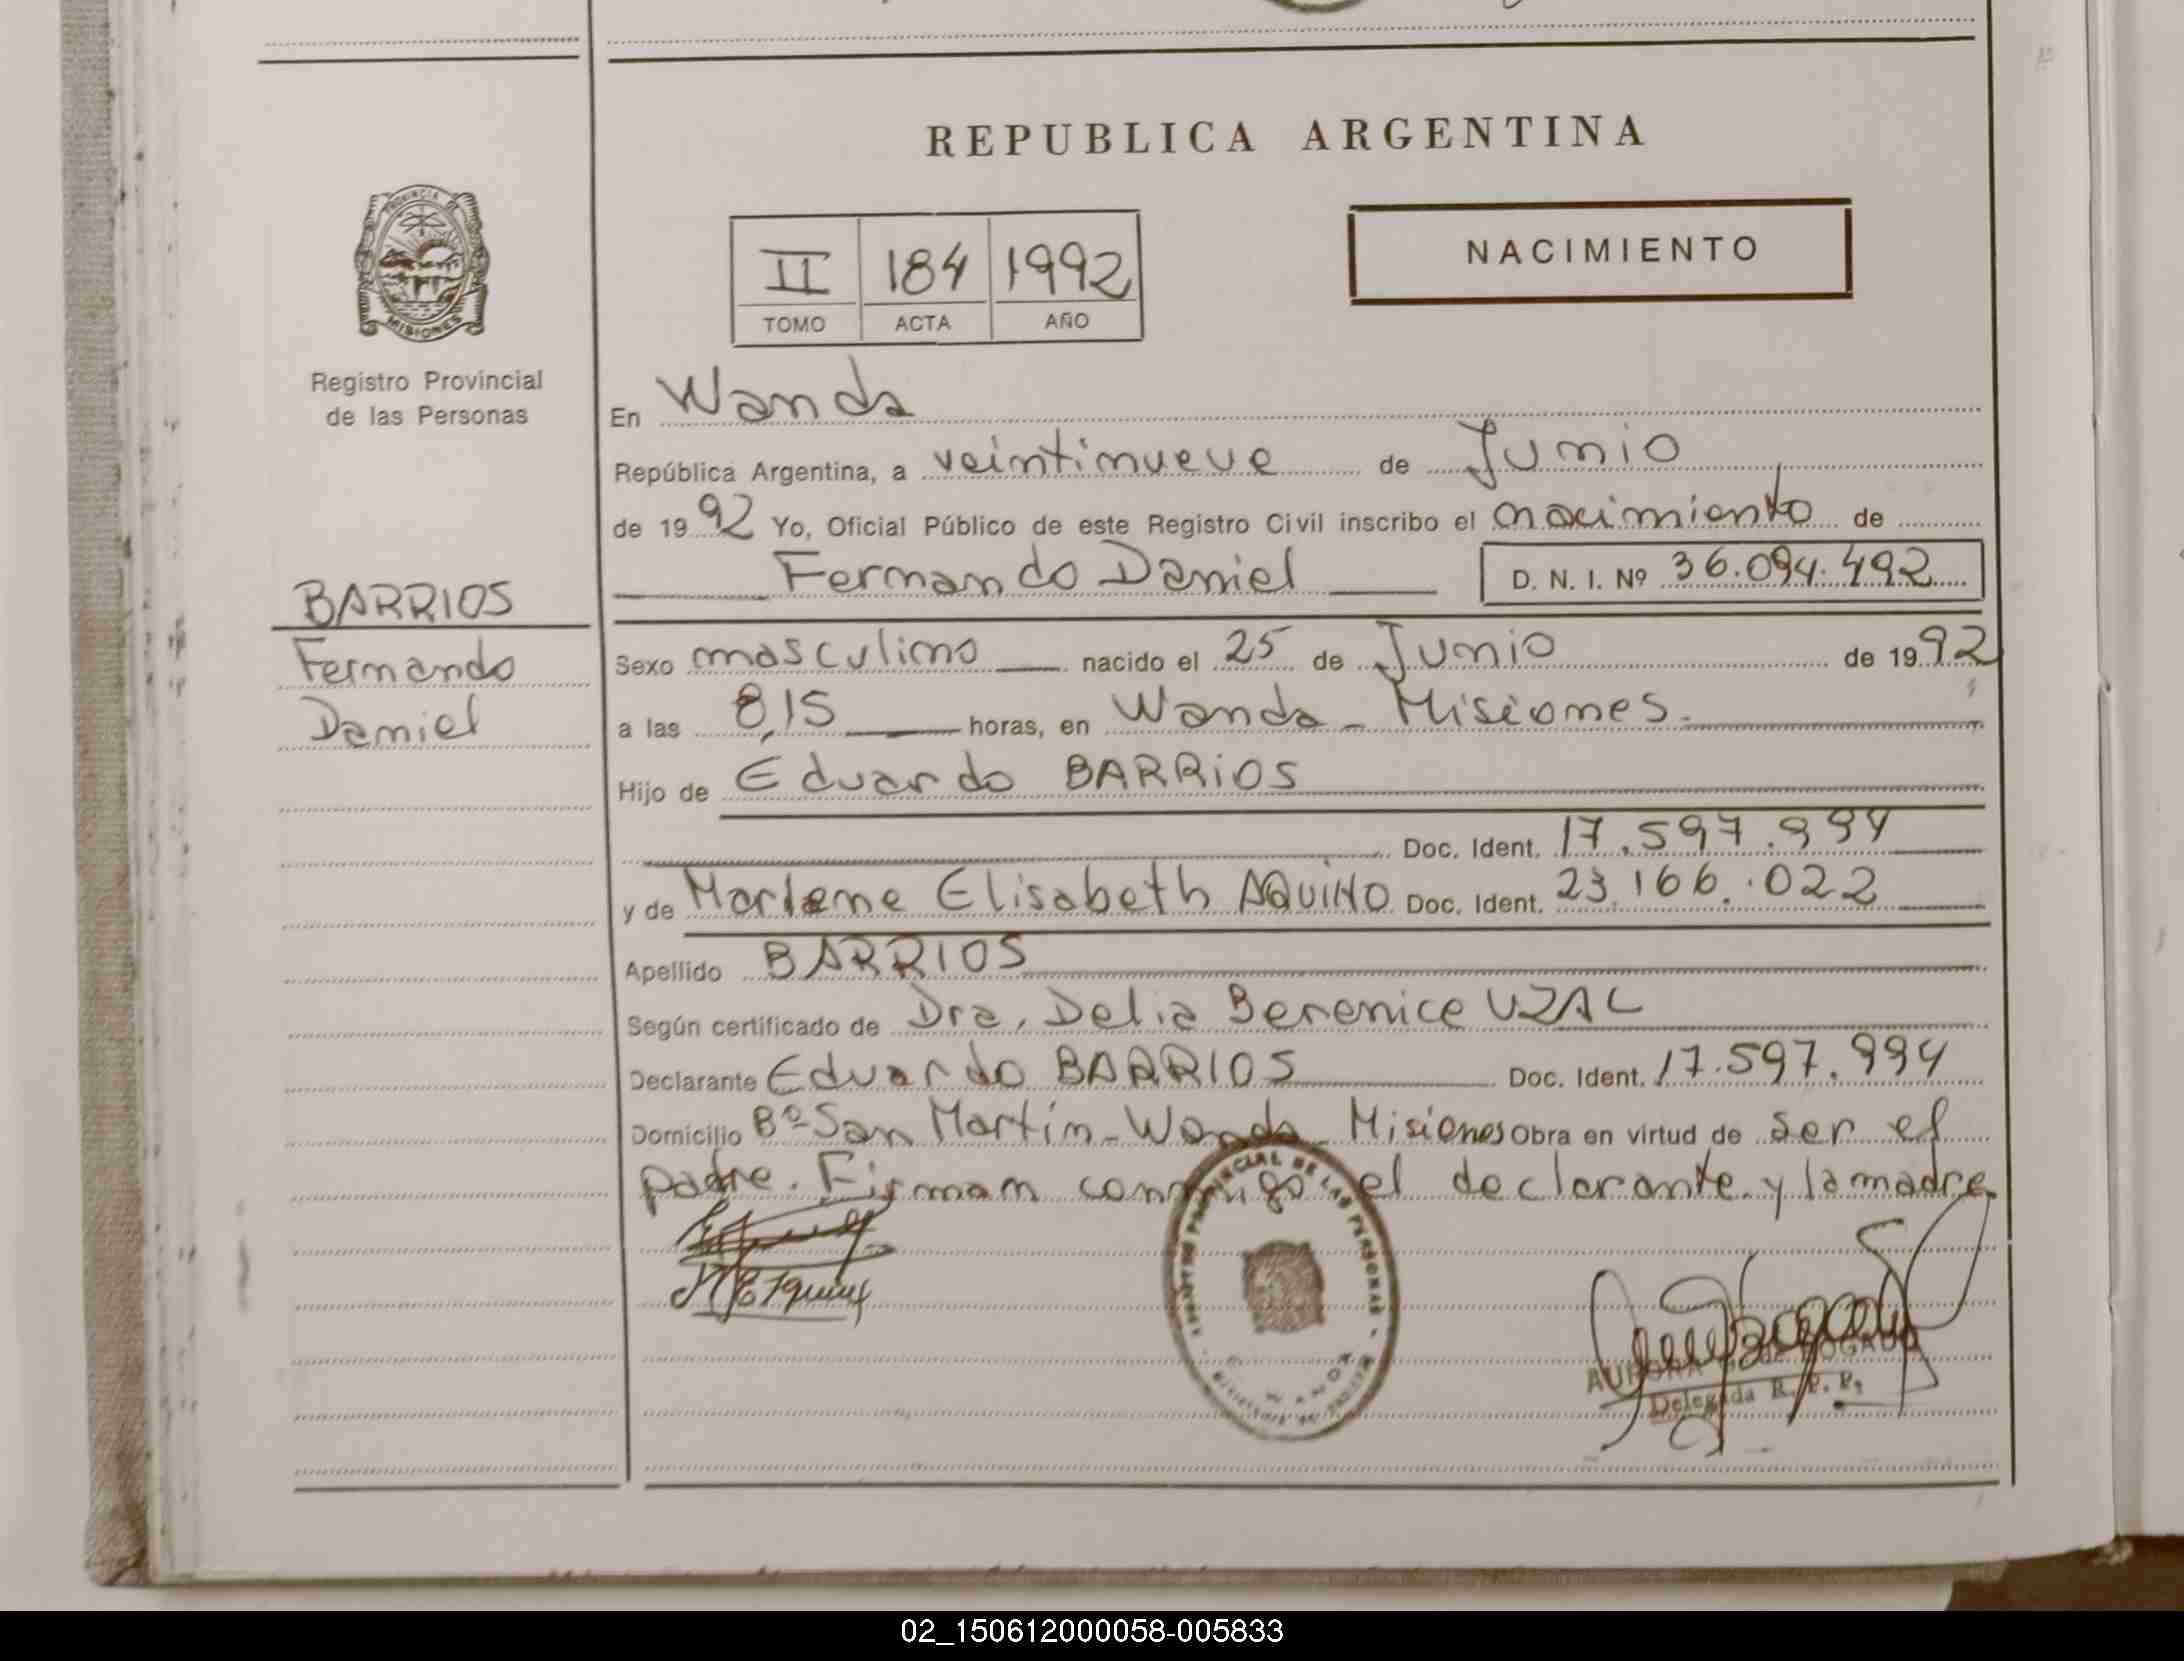 REPUBLICA ARGENTINA
PROVINCIA DE
MISIONES
Registro Provincial
de las Personas
II 184 1992
TOMO ACTA AÑO
NACIMIENTO
En Wanda
República Argentina, a veintinueve de Junio
de 1992 Yo, Oficial Público de este Registro Civil inscribo el nacimiento de
Fernando Daniel D. N. I. Nº 36.094.492
BARRIOS
Fernando
Daniel
Sexo masculino nacido el 25 de Junio de 1992
a las 8,15 horas, en Wanda - Misiones.
Hijo de Eduardo BARRIOS
Doc. Ident. 17.597.994
y de Marlene Elisabeth AQUINO Doc. Ident. 23.166.022
Apellido BARRIOS
Según certificado de Dra. Delia Berenice UZAL
Declarante Eduardo BARRIOS Doc. Ident. 17.597.994
Domicilio Bº San Martín - Wanda - Misiones Obra en virtud de ser el
padre. Firman conmigo el declarante y la madre
PROVINCIAL DE LAS PERSONAS
WANDA
AURORA DE BOGADO
Delegada R. P. P.
02_150612000058-005833